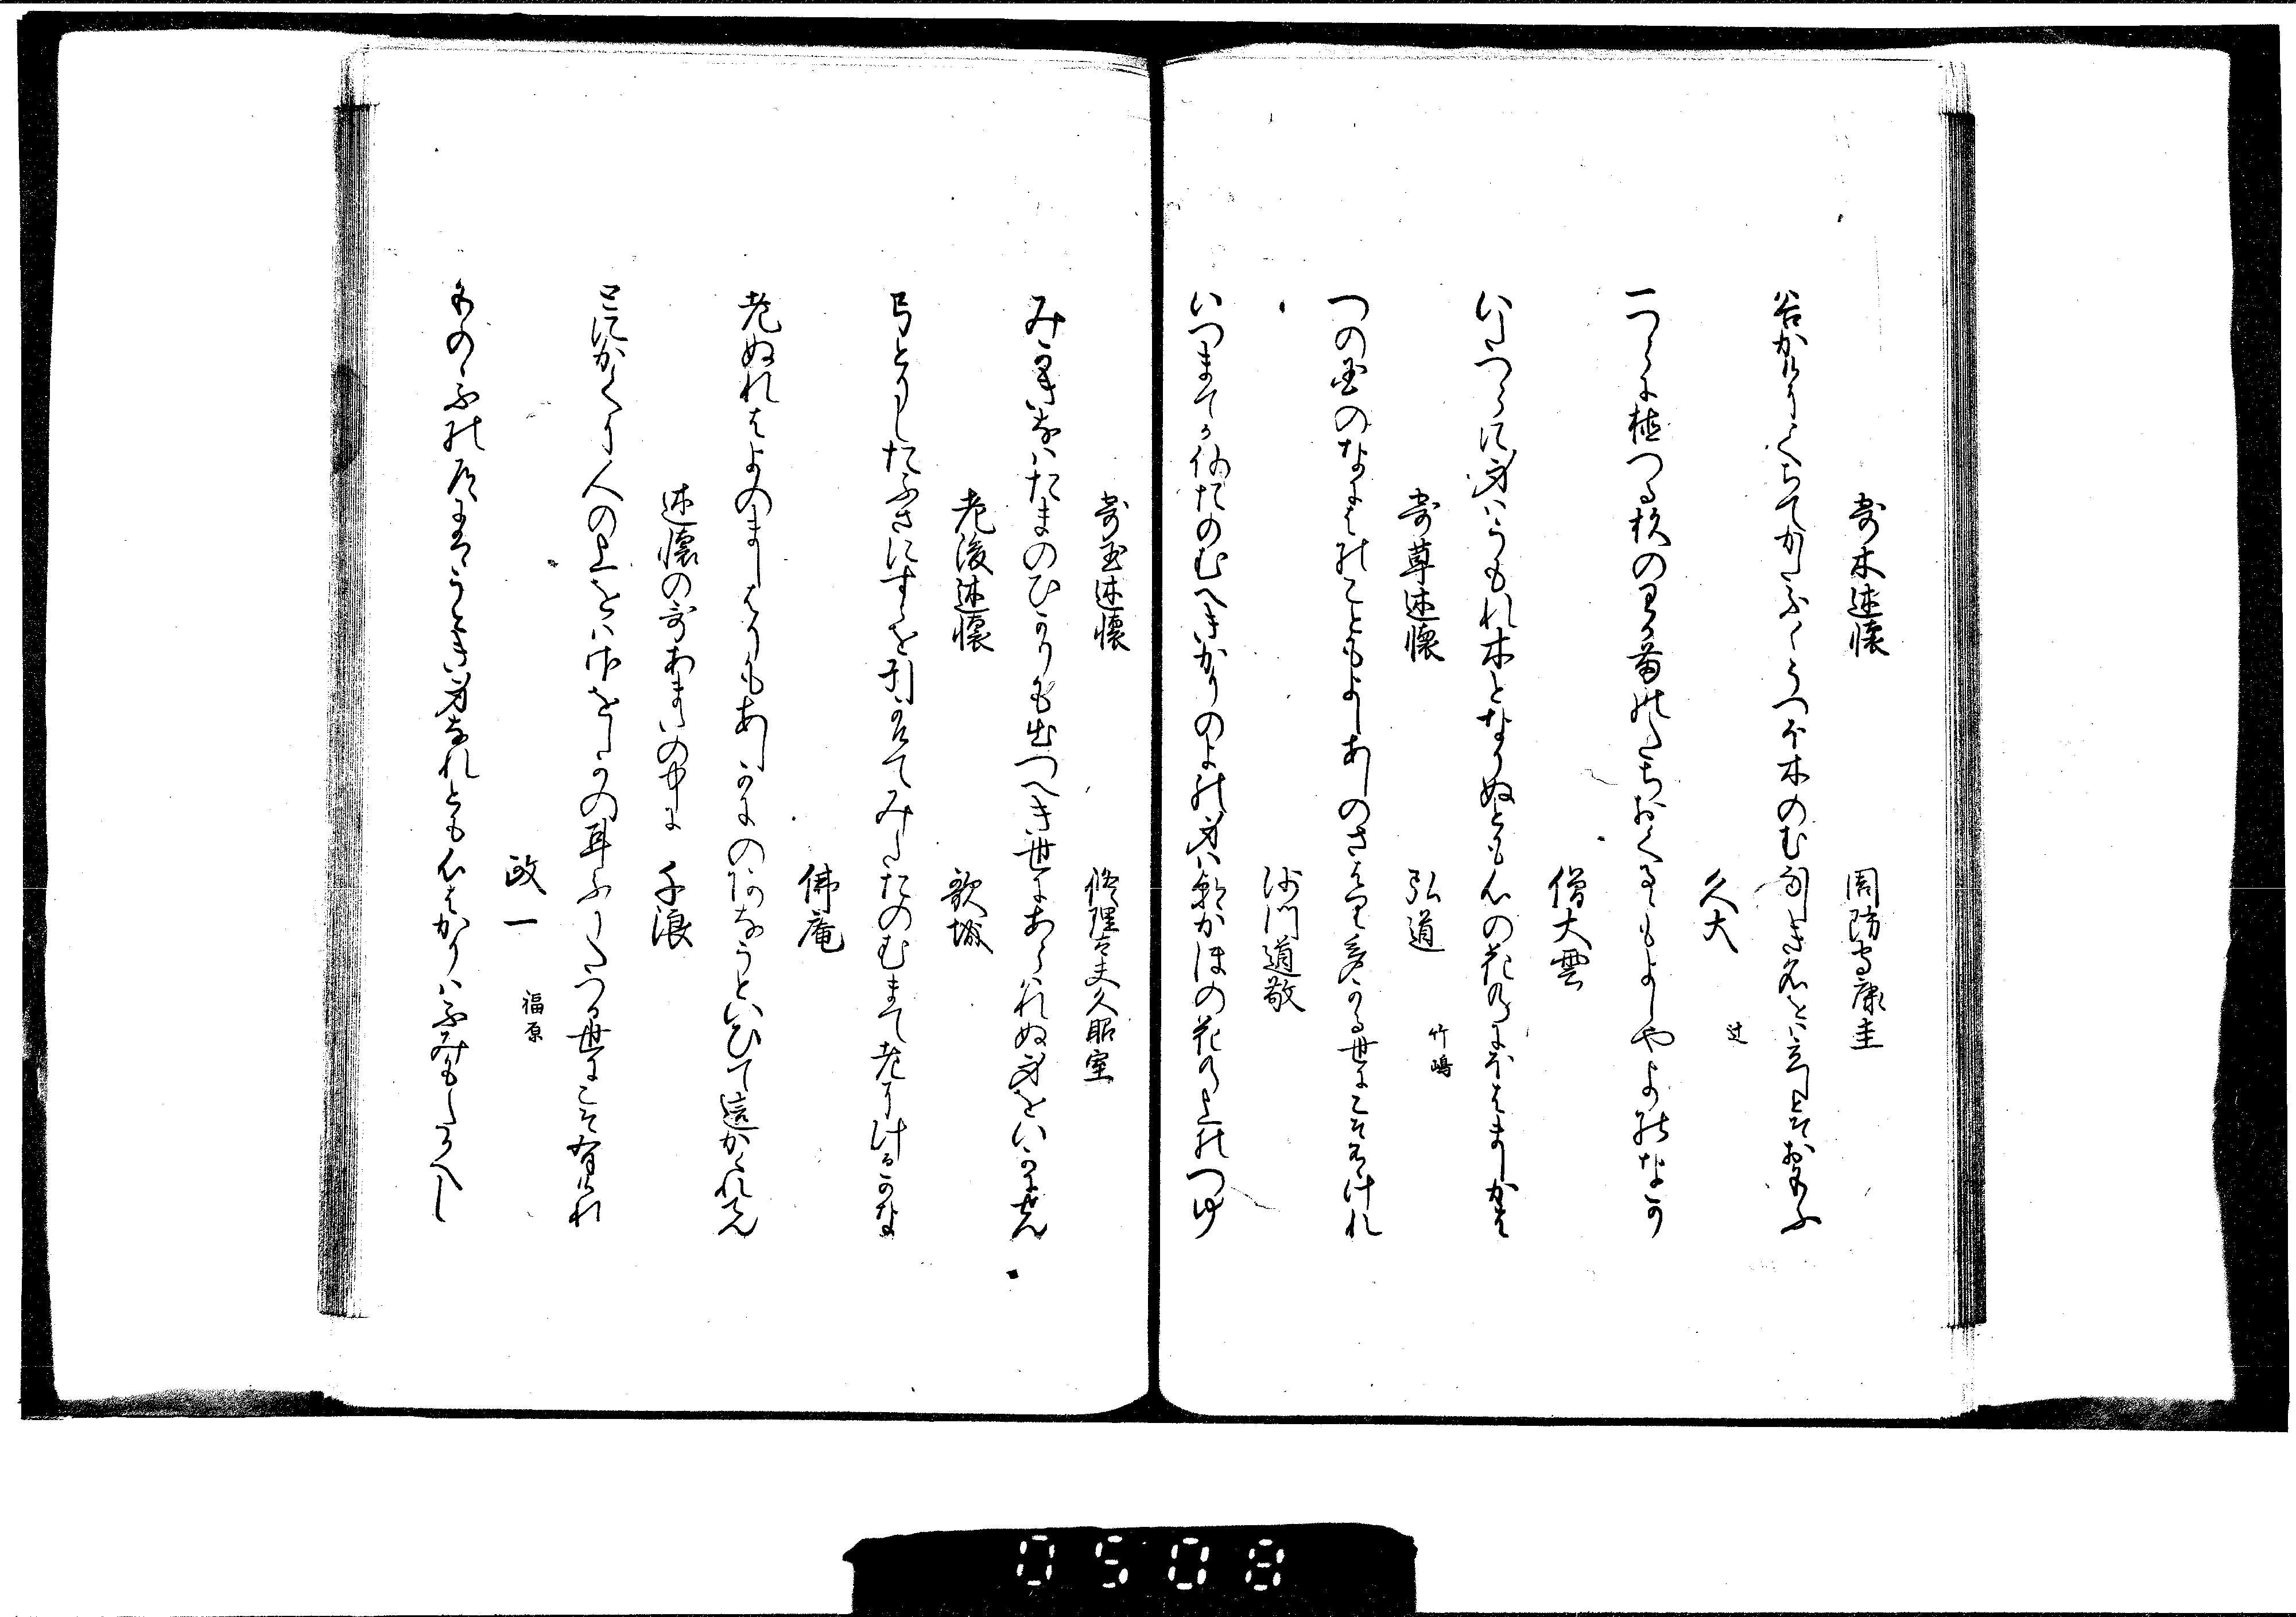 寄木述懐　周防守康圭
谷かけにくちてかたふくうつほ木のむ　しき名をは立しとそおもふ
久大　辻
一つらに植つる杉のわか苗のたちおくるゝもよしやよの
いたつらに身はうもれ木となりぬとも心の花のにほはましかは
僧大雲
寄草述懐　弘道　竹嶋
つの国のなにはのこともよしあしのさはりおほかる世にこそ有けれ
沙門道敬
いつまてか何たのむへきいかりのよの身は朝かほの花の上のつゆ
寄玉述懐　修理大夫久昭室
みかきなはたまのひかりも出つへき世にあらはれぬ身をいかにせん
老後述懐　歌城
弓とりしたふさにすゝを引かへてみたたのむまて老にけるかな
佛庵
老ぬれはよのましはりもあしかにの　なうといひて這かくれてん
述懐の哥あまたの中に　千浪
とにかくに人の上をは　をしかの耳ふりたつる世にこそ有けれ
政一　福原
ものゝふの道にはうとき身なれとも心はかりはふみもたかへし
0508